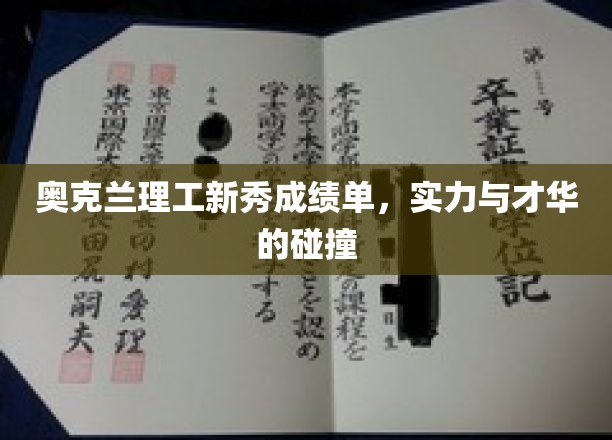 奥克兰理工新秀成绩单，实力与才华
的碰撞
第 号
卒業証書 学位記
本学商学部 定の課程を
修めて本学 ことを認め
学士(商学)の学 する
平成
月
日生
東京国際大学 長 田村愛理
東京国際大学長 田尻嗣夫